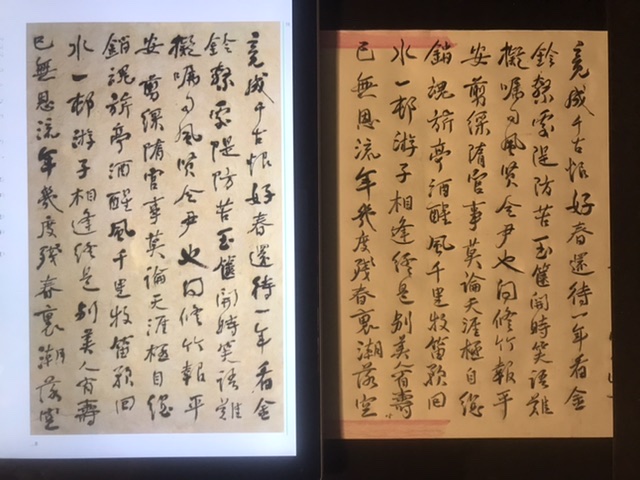 竟成千古恨好春還待一年看金
鈴繫處隄防苦玉開時笑語難
擬囑司風賢令尹也同修竹報平
安剪綵隋宮事莫論天涯極目總
銷魂旂亭酒醒風千里牧笛歌回
水一邨游子相逢終是別美人有壽
已無恩流年幾度殘春裏潮落空
竟成千古恨好春還待一年看金
鈴繫處隄防苦玉開時笑語難
擬囑司風賢令尹也同修竹報平
安剪綵隋宮事莫論天涯極目總
銷魂旂亭酒醒風千里牧笛歌回
水一邨游子相逢終是別美人有壽
已無恩流年幾度殘春裏潮落空